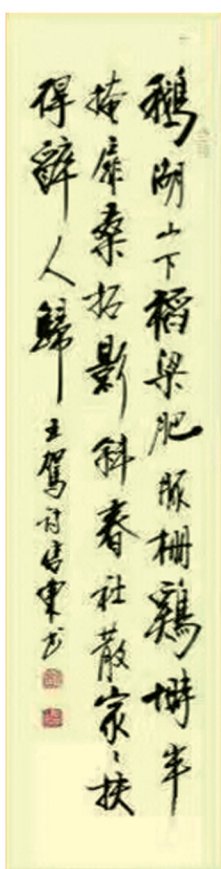 鵝湖山下稻梁肥豚栅鷄塒半
掩扉桑柘影斜春社散家〻扶
得醉人歸 王駕诗東书